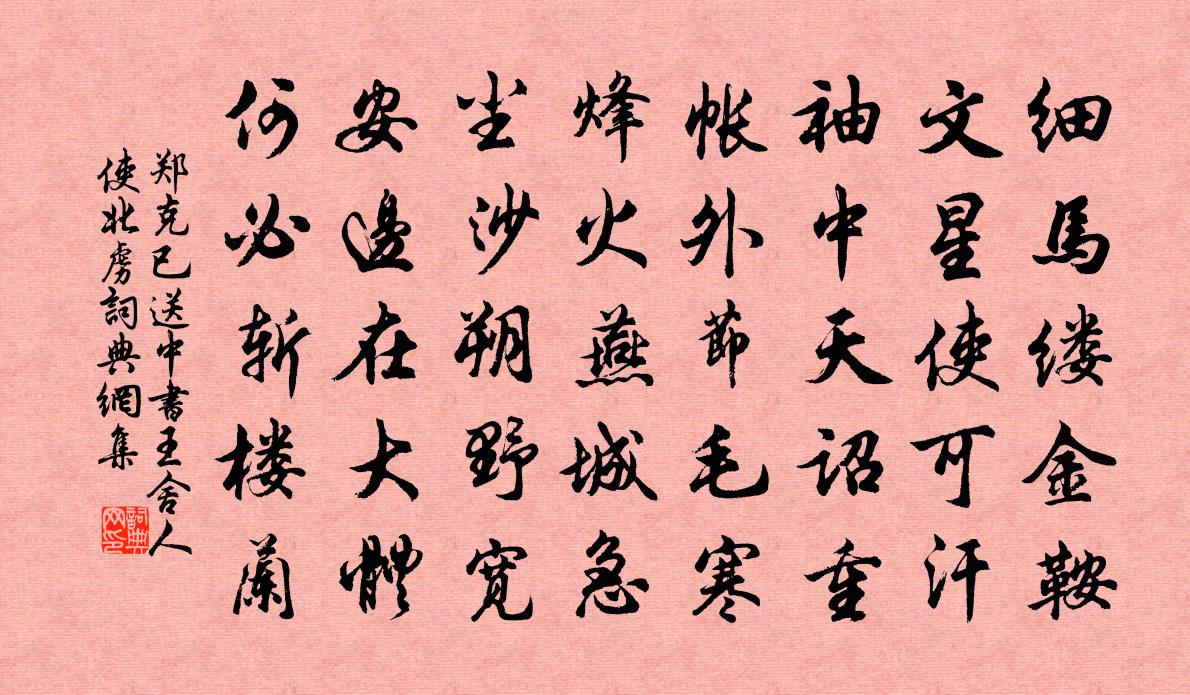 细馬缕金鞍
文星使可汗
袖中天诏重
帐外节毛寒
烽火燕城急
尘沙朔野寬
安邊在大體
何必斩楼蘭
郑克己送中書王舍人
使北虏詞典網集
詞典
网印